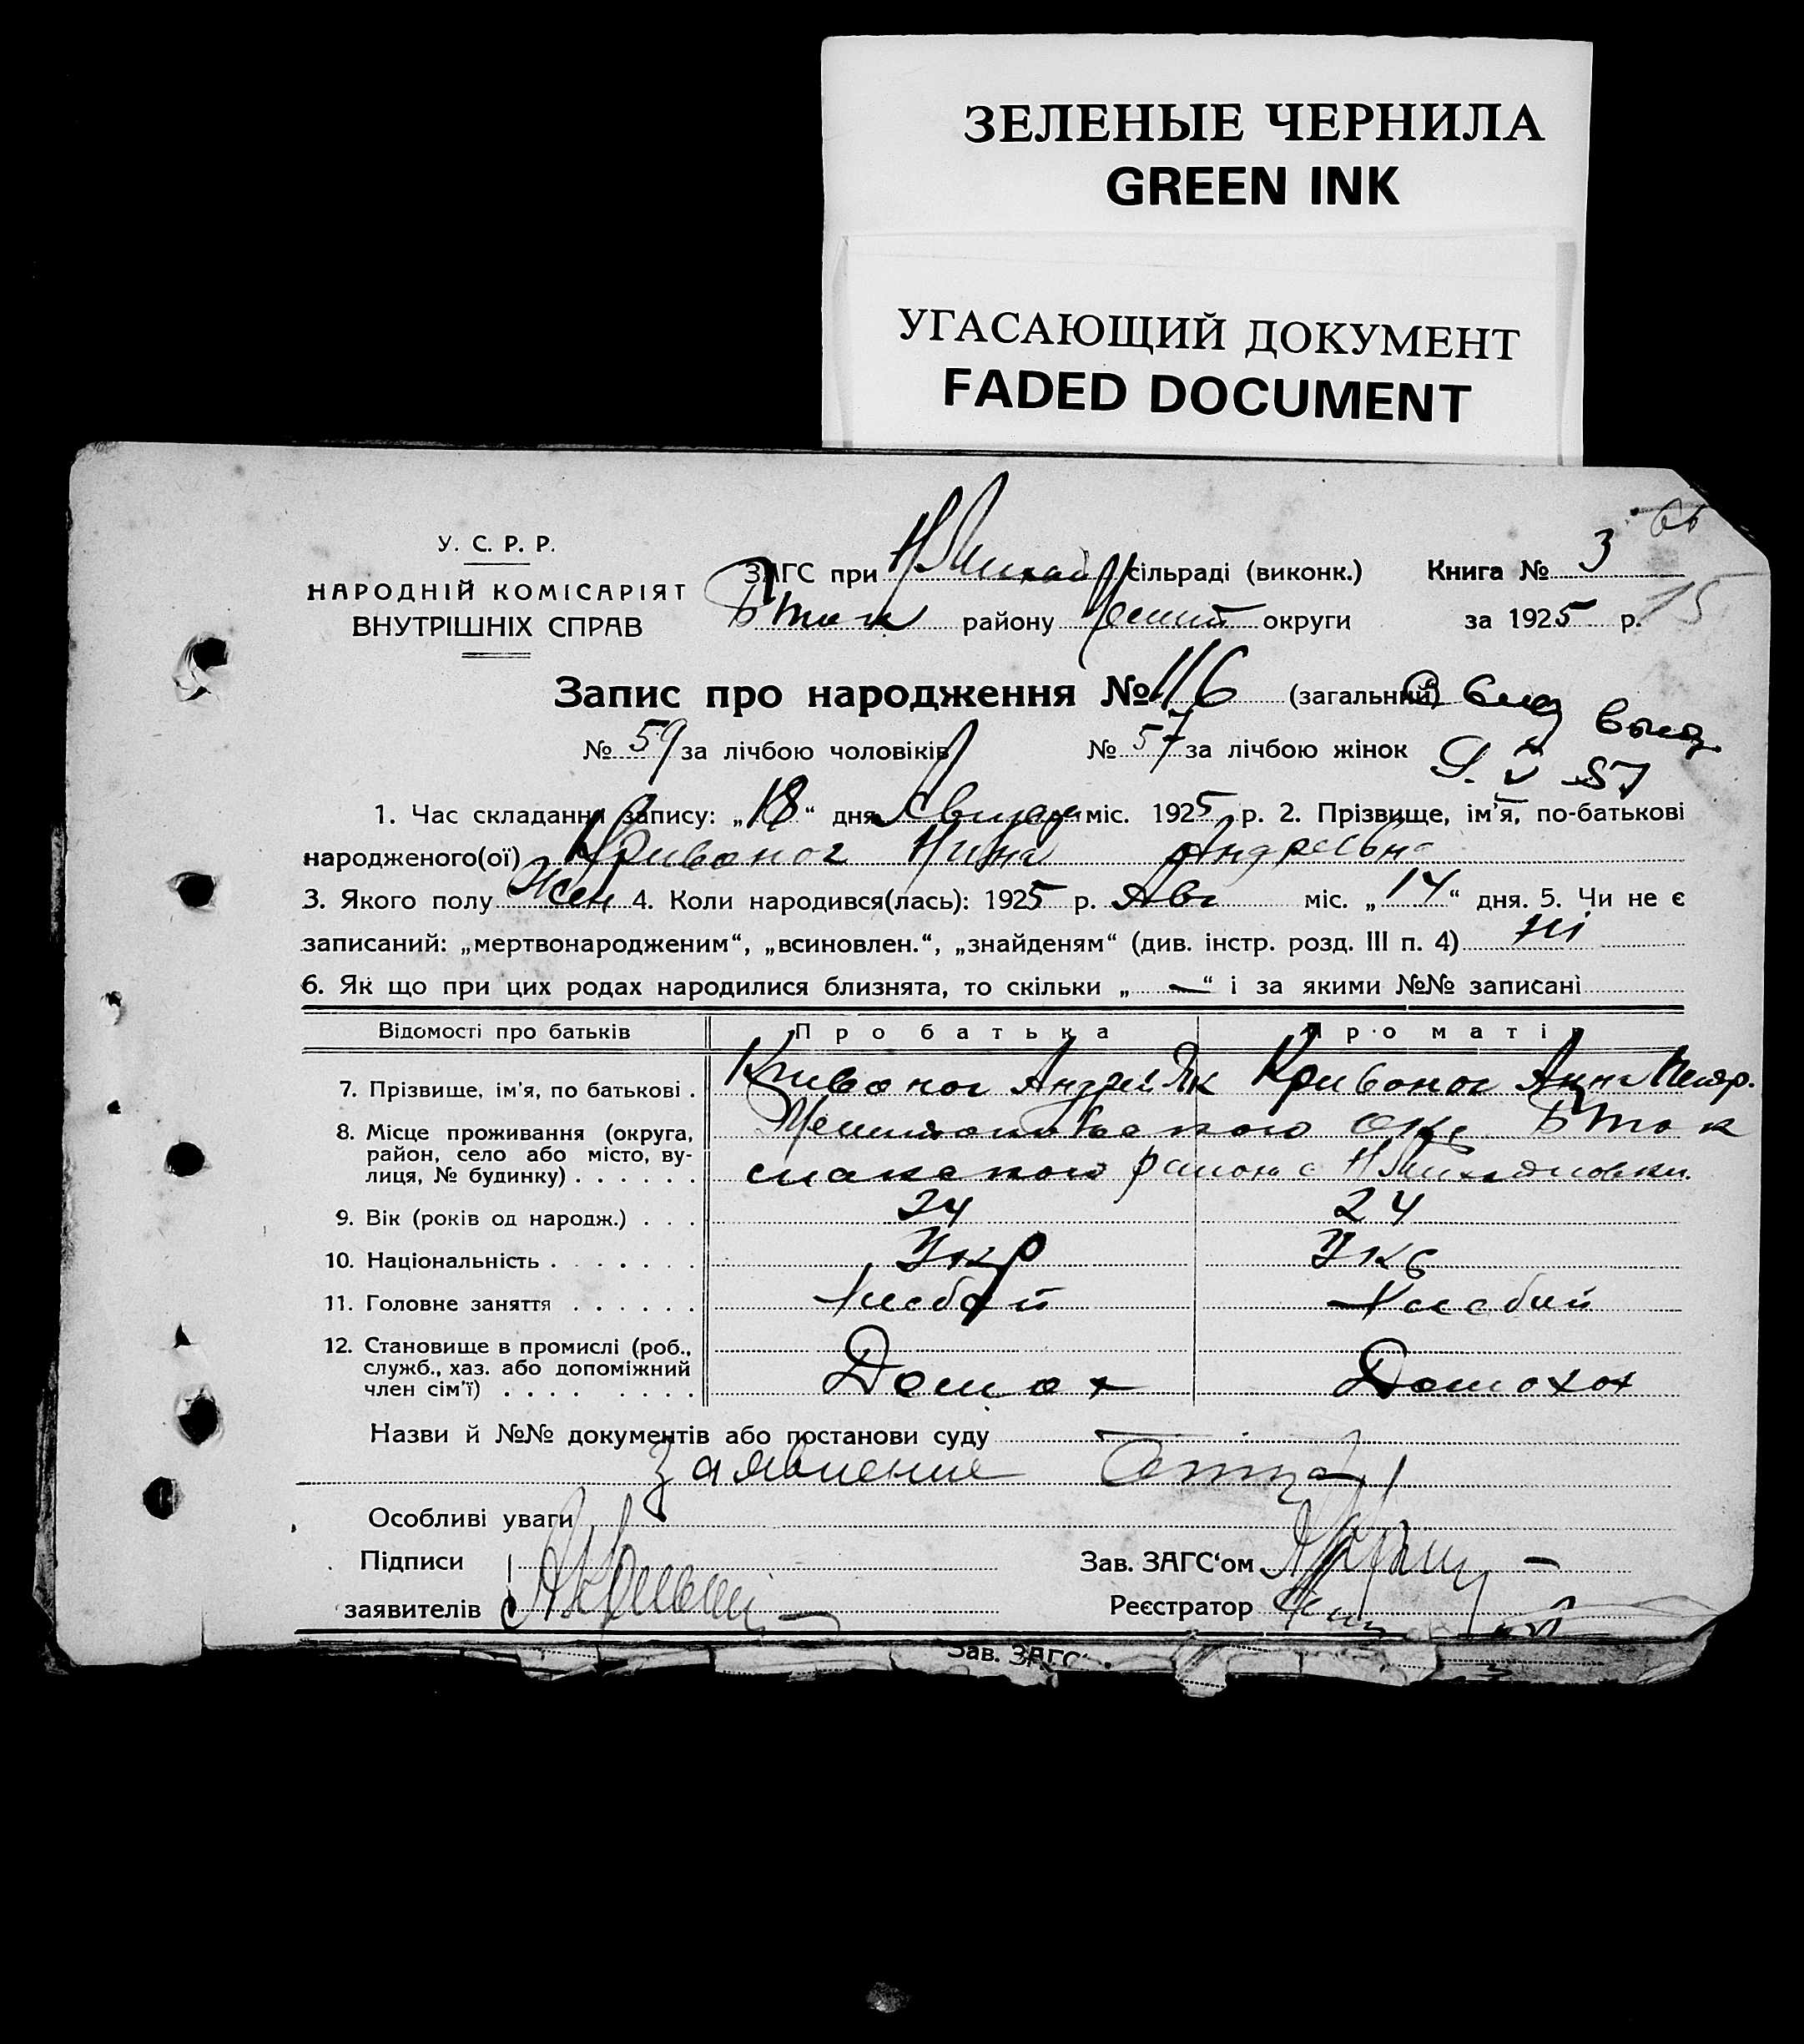 ЗЕЛЕНЫЕ ЧЕРНИЛА
GREEN INK
УГАСАЮЩИЙ ДОКУМЕНТ
FADED DOCUMENT
У. С. Р. Р.
НАРОДНІЙ КОМІСАРІЯТ
ВНУТРІШНІХ СПРАВ
ЗАГС при Н Михай сільраді (виконк.) Книга № 3
Б Ток району округи за 1925 р. 15
Запис про народження № 116 (загальний)
№ 59 за лічбою чоловіків № 57 за лічбою жінок
1. Час складання запису: „18“ дня міс. 1925 р. 2. Прізвище, ім'я, по-батькові
народженого(ої) Кривоног Нина Андреевна
3. Якого полу Жен 4. Коли народився(лась): 1925 р. Авг міс. „14“ дня. 5. Чи не є
записаний: „мертвонародженим“, „всиновлен.“, „знайденям“ (див. інстр. розд. III п. 4) Ні
6. Як що при цих родах народилися близнята, то скільки „ — “ і за якими №№ записані
Відомості про батьків Про батька Про матір
7. Прізвище, ім'я, по батькові . Кривоног Андрей Як Кривоног Анна Петр.
8. Місце проживання (округа, район, село або місто, вулиця, № будинку) . . . . . . Мелитопольского Б Ток
району с Н Михайловки.
9. Вік (років од народж.) . . . 24 24
10. Національність . . . . . . . Укр Укр
11. Головне заняття . . . . . . Хлебой Хлебой
12. Становище в промислі (роб., служб., хаз. або допоміжний член сім'ї) . . . . . . . . Домох Домохох
Назви й №№ документів або постанови суду
Заявление Отца
Особливі уваги
Підписи Зав. ЗАГС‘ом
заявителів Реєстратор
Зав. ЗАГС‘